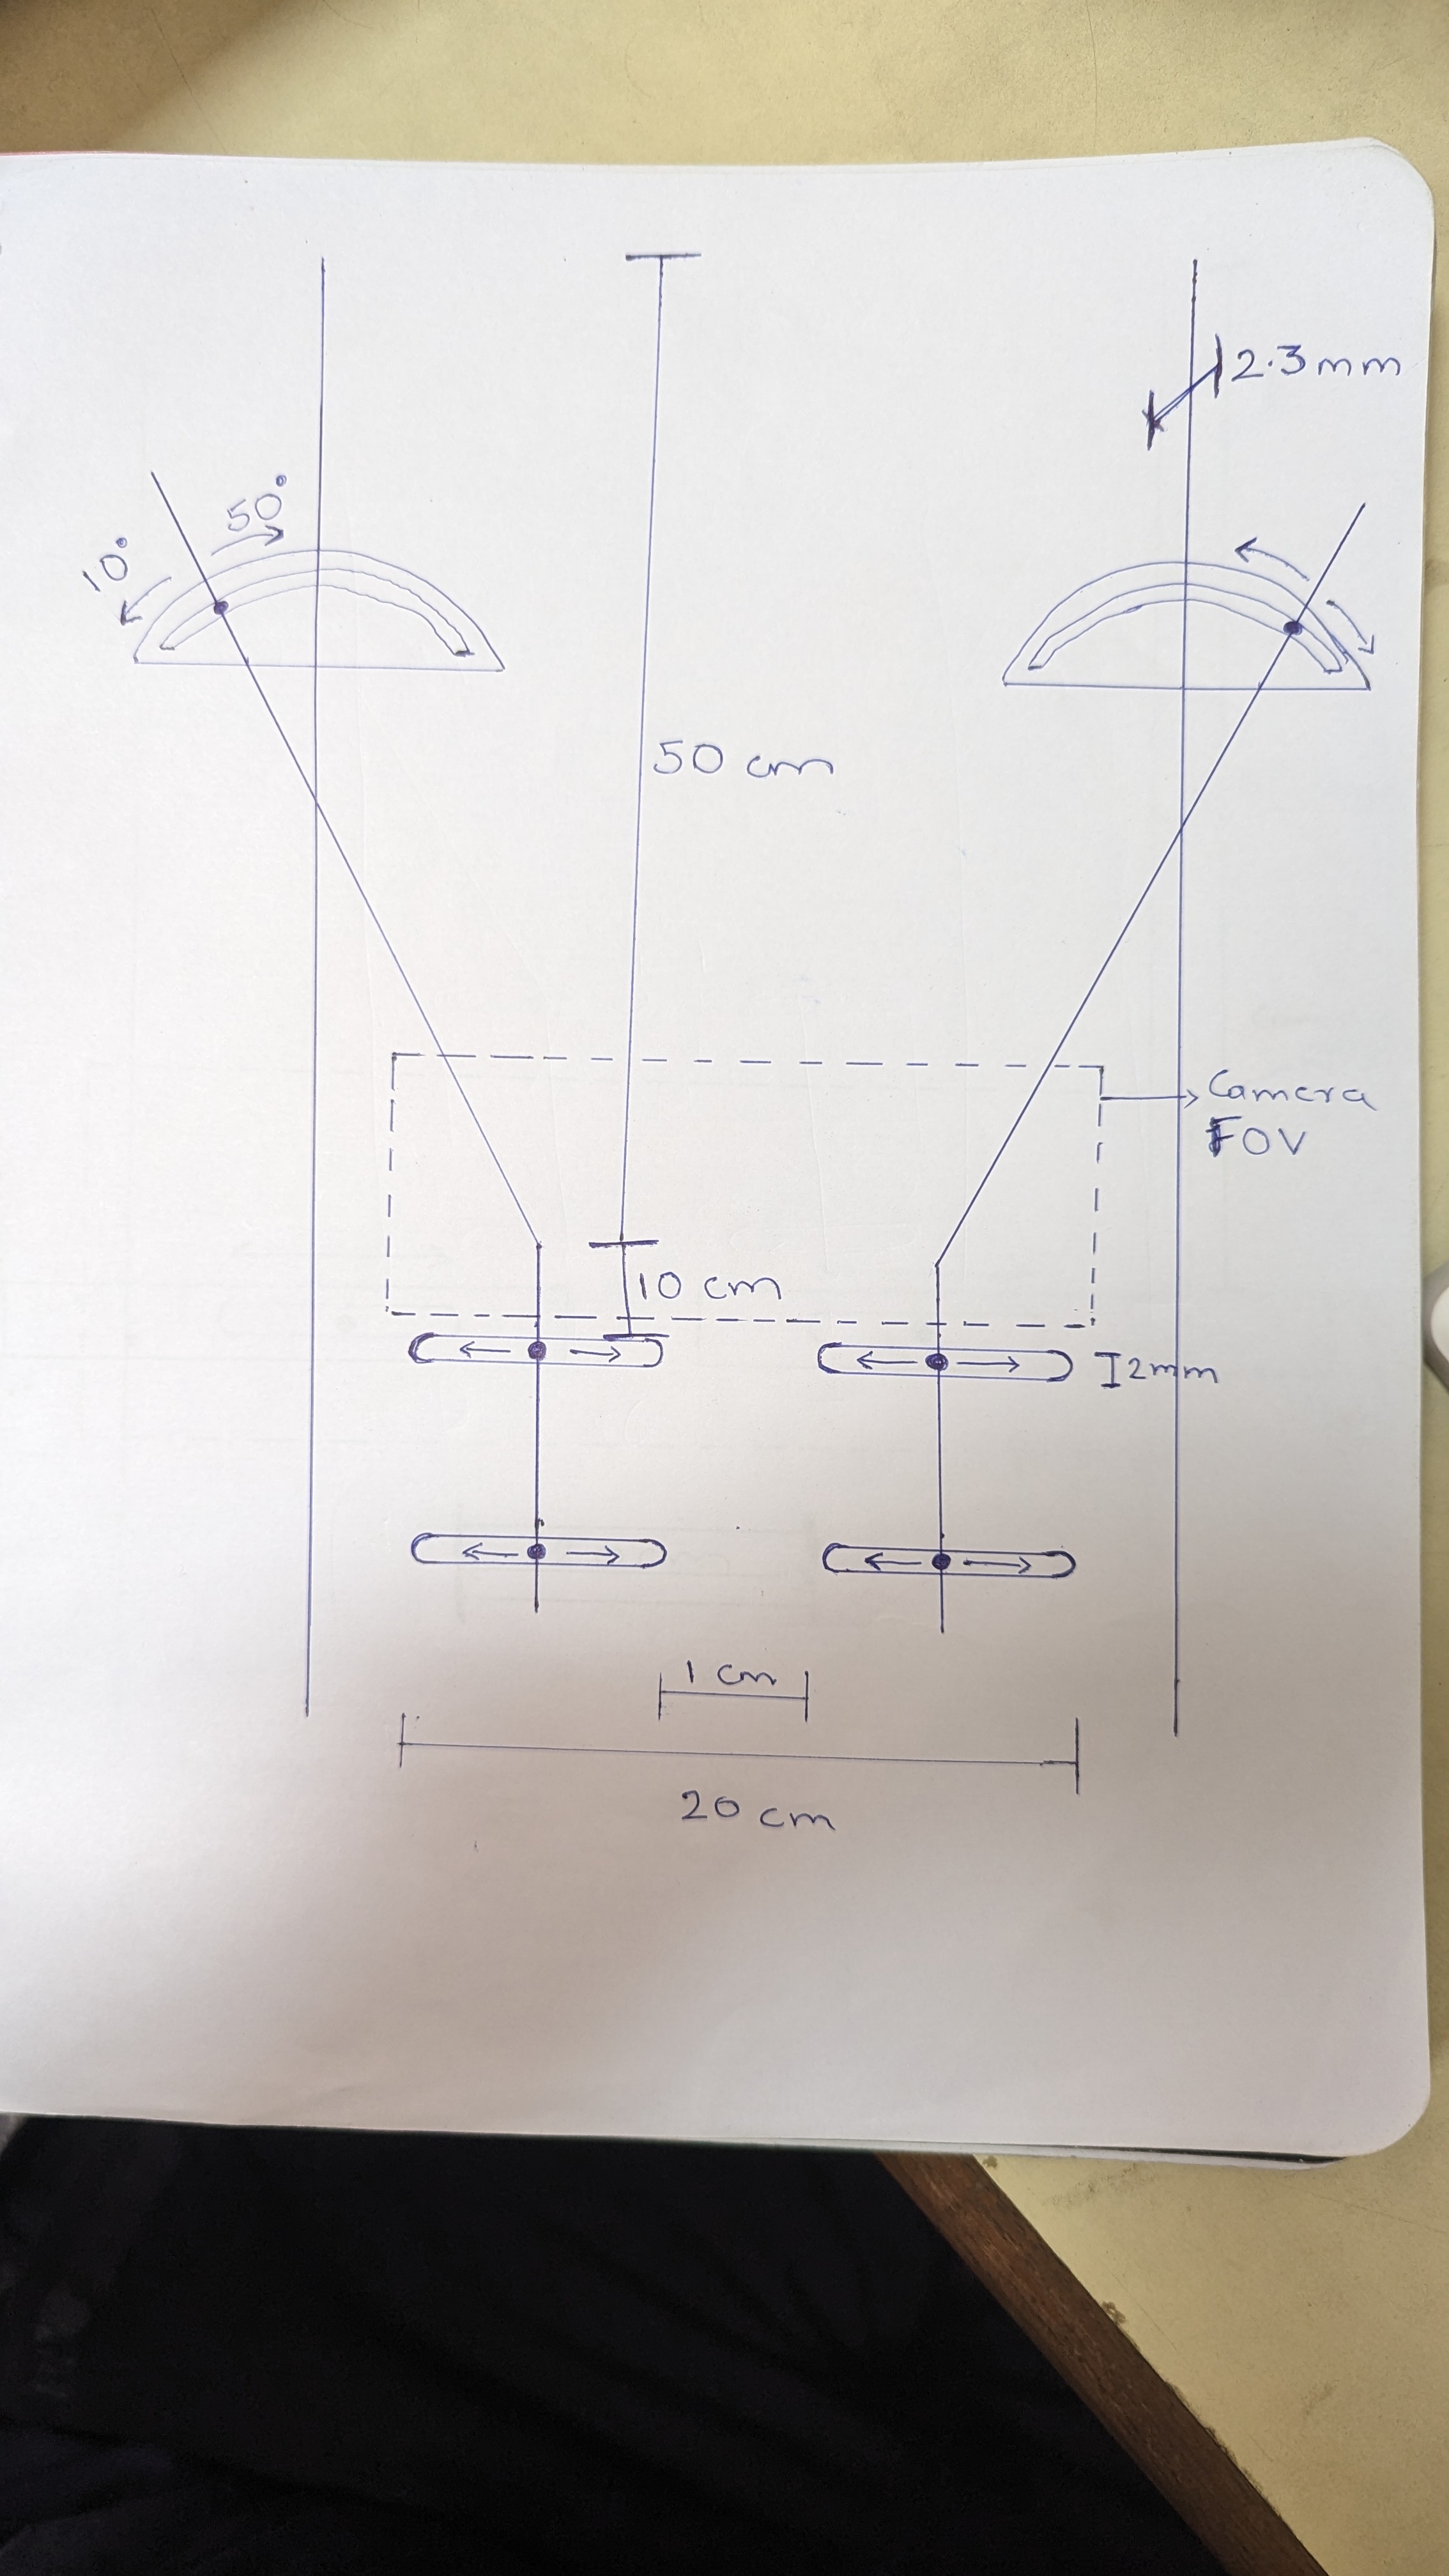 2.3mm
50°
10°
50 cm
Camera
FOV
10 cm
2mm
1 cm
20 cm